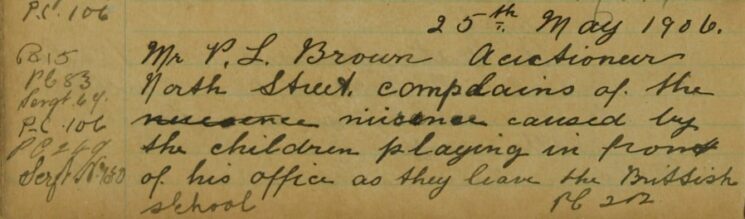 P.C. 106
25th May 1906.
B15
Mr P. L. Brown Auctioneer
PC 83
North Street. complains of the
Sergt 64.
P.C. 106
nuicence caused by
PC 269
the children playing in front
Sergt No 130
of his office as they leave the Brittish
school
PC 202